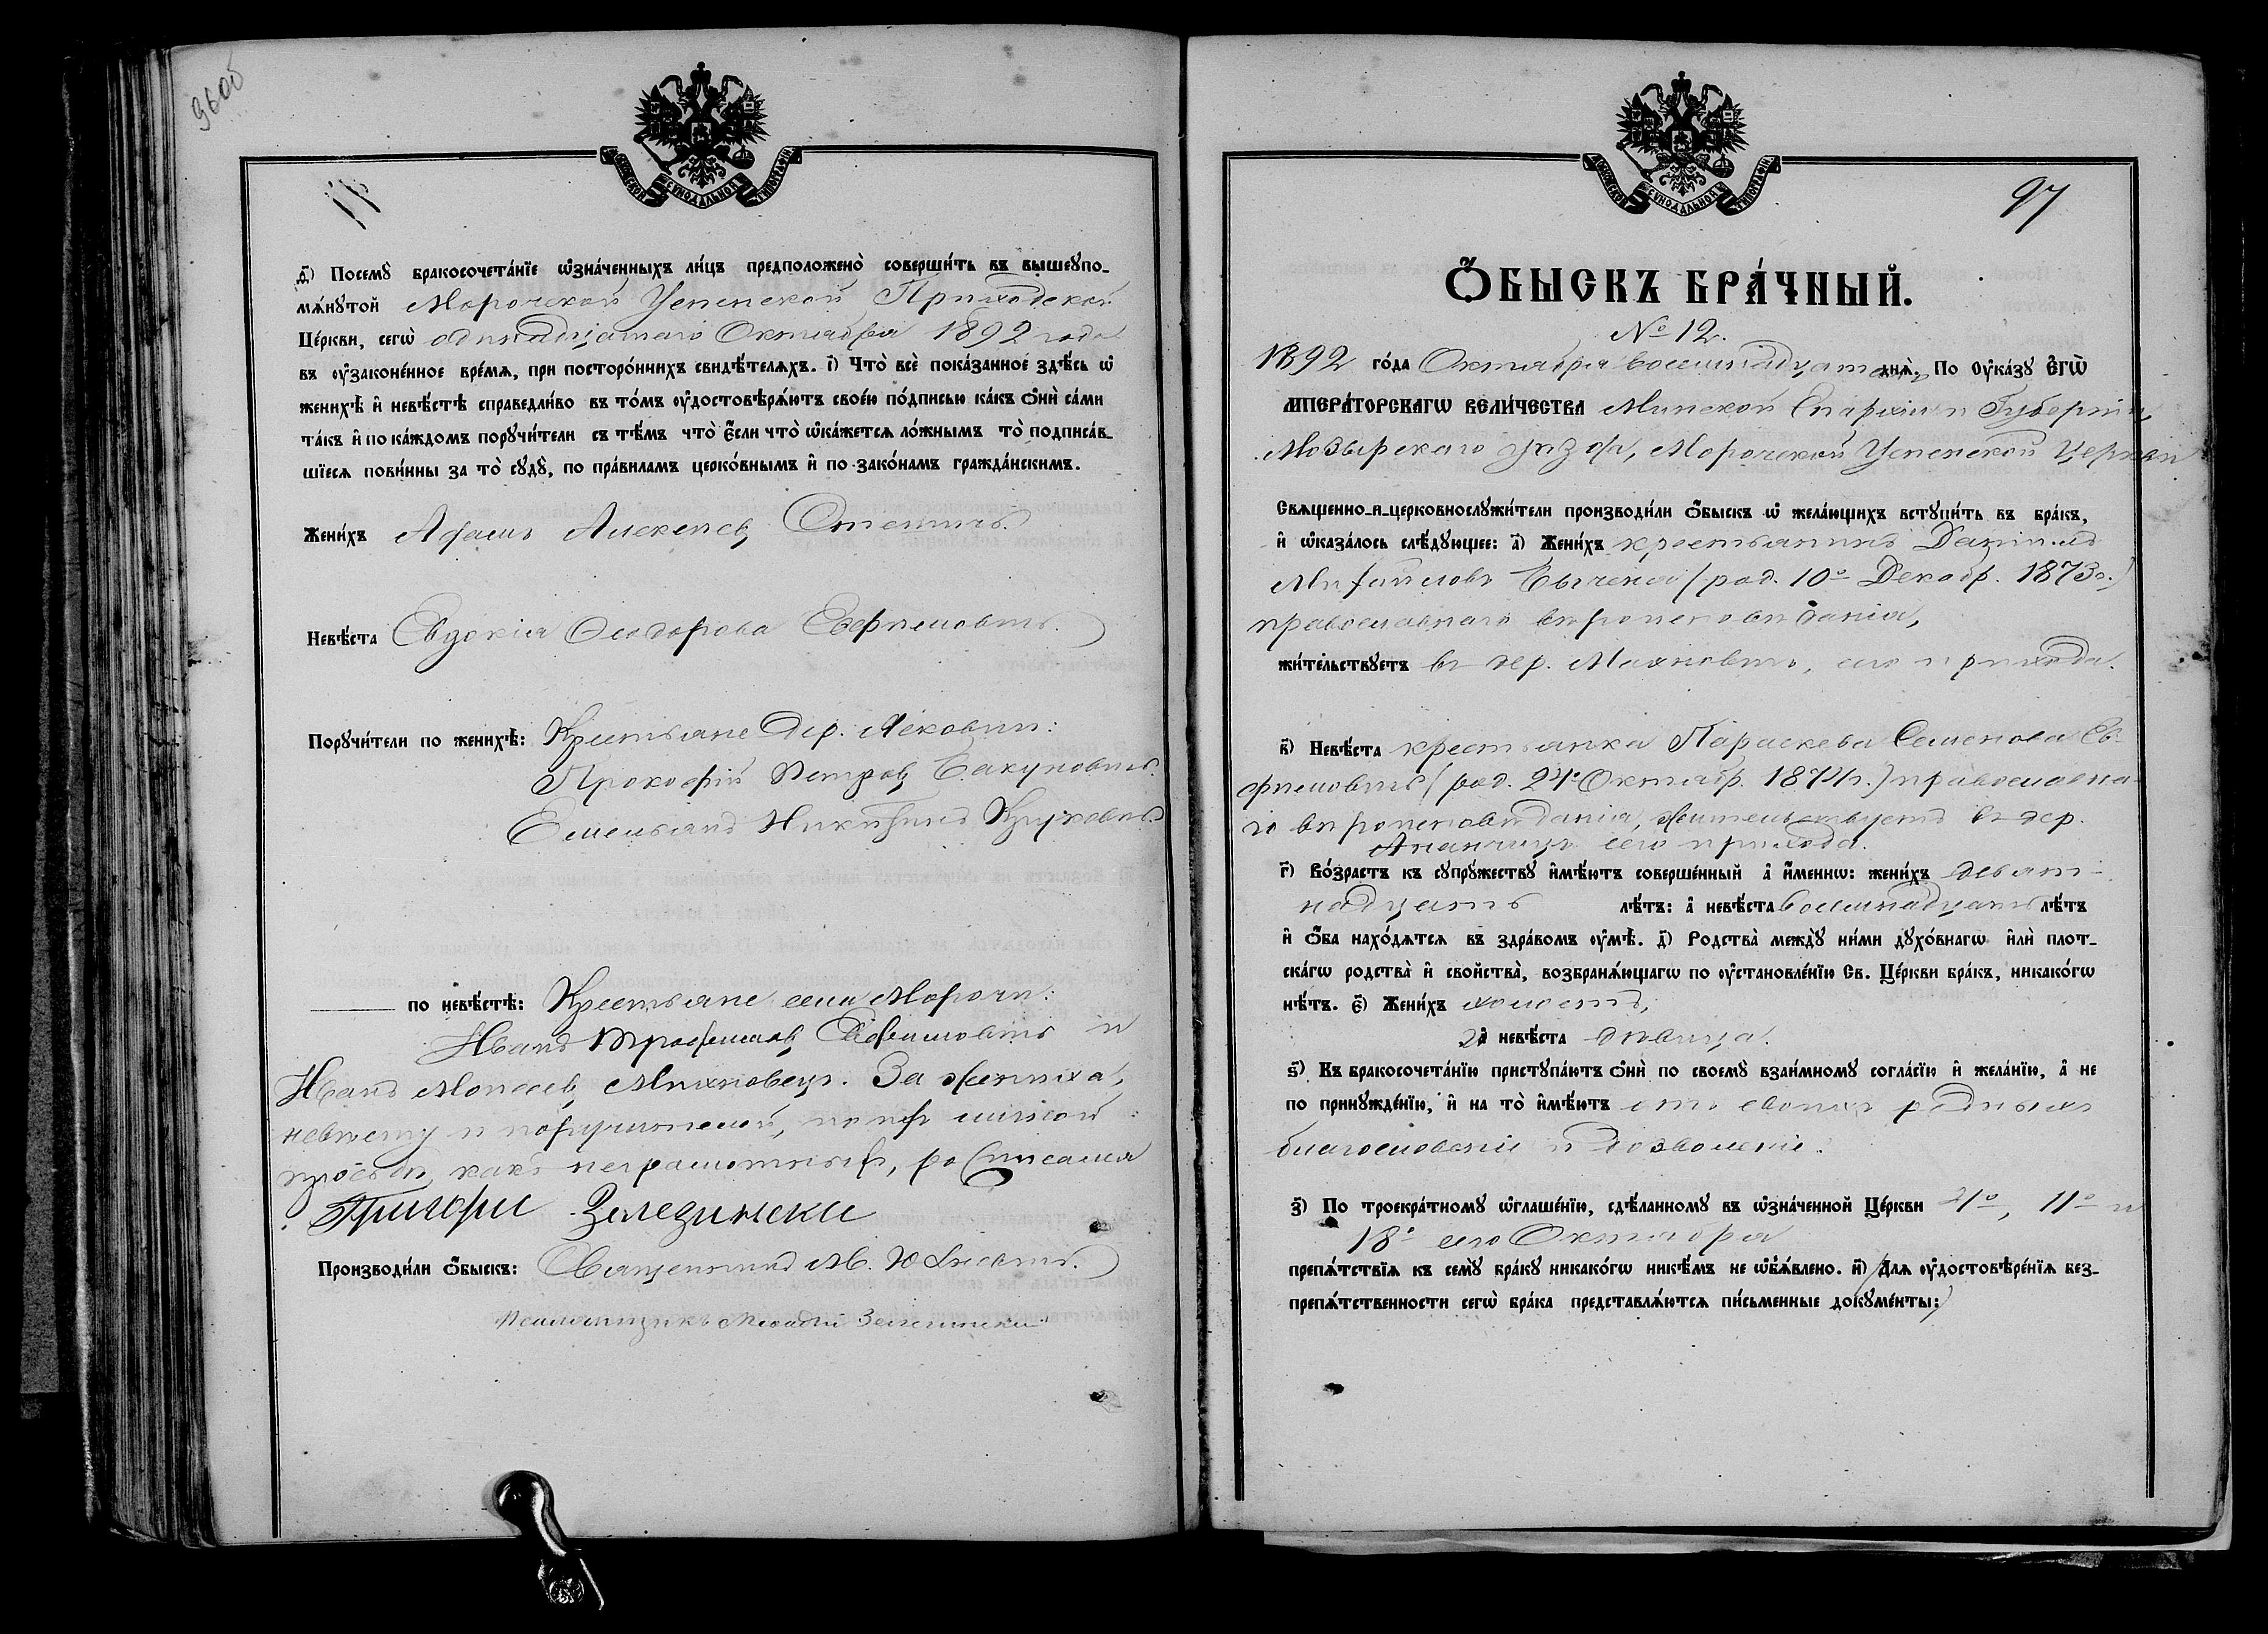 96об
11
МОСКОВСКОЙ СѴНОДАЛЬНОЙ ТИПОГРАФІИ
ѳ҃) Посемꙋ̀ бракосочета́нїе ѡ҆зна́ченныхъ ли́цъ предположено̀ соверши́ть въ вышеꙋпо-
мѧ́нꙋтой Морочской Успенской Приходской
Це́ркви, сегѡ̀ одинадцатаго Октября 1892 года
въ ᲂу҆законе́нное вре́мѧ, при посторо́ннихъ свидѣ́телѧхъ. і҃) Что̀ всѐ пока́занное здѣ́сь ѡ҆
женихѣ̀ и҆ невѣ́стѣ справедли́во въ то́мъ ᲂу҆достовѣрѧ́ютъ свое́ю по́дписью ка́къ ѻ҆нѝ са́ми
та́къ и҆ по ка́ждомъ порꙋчи́тели съ тѣ́мъ что̀ є҆́сли что̀ ѡ҆ка́жетсѧ ло́жнымъ то̀ подписа́в-
шїесѧ пови́нны за то̀ сꙋдꙋ̀, по пра́виламъ церко́внымъ и҆ по зако́намъ гражда́нскимъ.
Жени́хъ Адамъ Алексѣевъ
Невѣ́ста Евдокія Ѳеодорова Евфимовичъ.
Порꙋчи́тели по женихѣ̀: Крестьяне дер. Ясковичи:
Прокофій Петровъ Бакуновичъ.
Емельянъ Никитинъ Круковичъ
по невѣ́стѣ: Крестьяне села Морочи:
Иванъ Трофимовъ Евфимовичъ и
Иванъ Моисеевъ Михновецъ. За жениха,
невѣсту и поручителей, по ихъ личной
просьбѣ, какъ неграмотныхъ, росписался
Григори Зелезински
Производи́ли ѻ҆́быскъ: Священникъ М.
Псаломщикъ
97
МОСКОВСКОЙ СѴНОДАЛЬНОЙ ТИПОГРАФІИ
Ѻ҆́БЫСКЪ БРА́ЧНЫЙ.
№ 12.
1892 го́да Октября восемнадцатаго днѧ̀. По Оу҆ка́зꙋ Є҆гѡ̀
ИМПЕРА́ТОРСКАГѠ ВЕЛИ́ЧЕСТВА Минской Епархіи и Губерніи,
Мозырскаго уѣзда, Морочской Успенской Церкви
Свѧщенно-и-церковнослꙋжи́тели производи́ли ѻ҆́быскъ ѡ҆ жела́ющихъ встꙋпи́ть въ бра́къ,
и҆ ѡ҆каза́лось слѣ́дꙋющее: а҃) Жени́хъ крестьянинъ Даніилъ
Михайловъ Бычекъ (род. 10го Декабр. 1873 г.)
православнаго вѣроисповѣданія,
жи́тельствꙋетъ въ дер. Махновичъ, сего прихода.
в҃) Невѣ́ста крестьянка Параскева Семенова Ев-
фимовичъ (род. 24го Октябр. 1874 г.) православна-
го вѣроисповѣданія, жительствуетъ въ дер.
Ананчицы сего прихода.
г҃) Во́зрастъ къ сꙋпрꙋ́жествꙋ и҆мѣ́ютъ соверше́нный а҆ и҆́меннѡ: жени́хъ девят-
надцать лѣ́тъ: а҆ невѣ́ста восемнадцать лѣ́тъ
и҆ ѻ҆́ба нахо́дѧтсѧ въ здра́вомъ ᲂу҆мѣ̀. д҃) Родства̀ междꙋ̀ ни́ми дꙋхо́внагѡ и҆лѝ плот-
ска́гѡ родства̀ и҆ свойства̀, возбранѧ́ющагѡ по ᲂу҆становле́нїю Св. Це́ркви бра́къ, никако́гѡ
нѣ́тъ. є҃) Жени́хъ холостъ,
а҆ невѣ́ста дѣвица.
ѕ҃) Къ бракосочета́нїю пристꙋпа́ютъ ѻ҆нѝ по своемꙋ̀ взаи́мномꙋ согла́сїю и҆ жела́нїю, а҆ не
по принꙋжде́нїю, и҆ на то̀ и҆мѣ́ютъ отъ своихъ родныхъ
благословеніе и дозволеніе.
з҃) По троекра́тномꙋ ѡ҆глаше́нїю, сдѣ́ланномꙋ въ ѡ҆зна́ченной Це́ркви 4го, 11го и
18го сего Октября
препѧ́тствїѧ къ семꙋ̀ бра́кꙋ никако́гѡ никѣ́мъ не ѡ҆б̾ѧ́влено. и҃) Длѧ ᲂу҆достовѣре́нїѧ без-
препѧ́тственности сегѡ̀ бра́ка представлѧ́ютсѧ пи́сьменные докꙋме́нты: